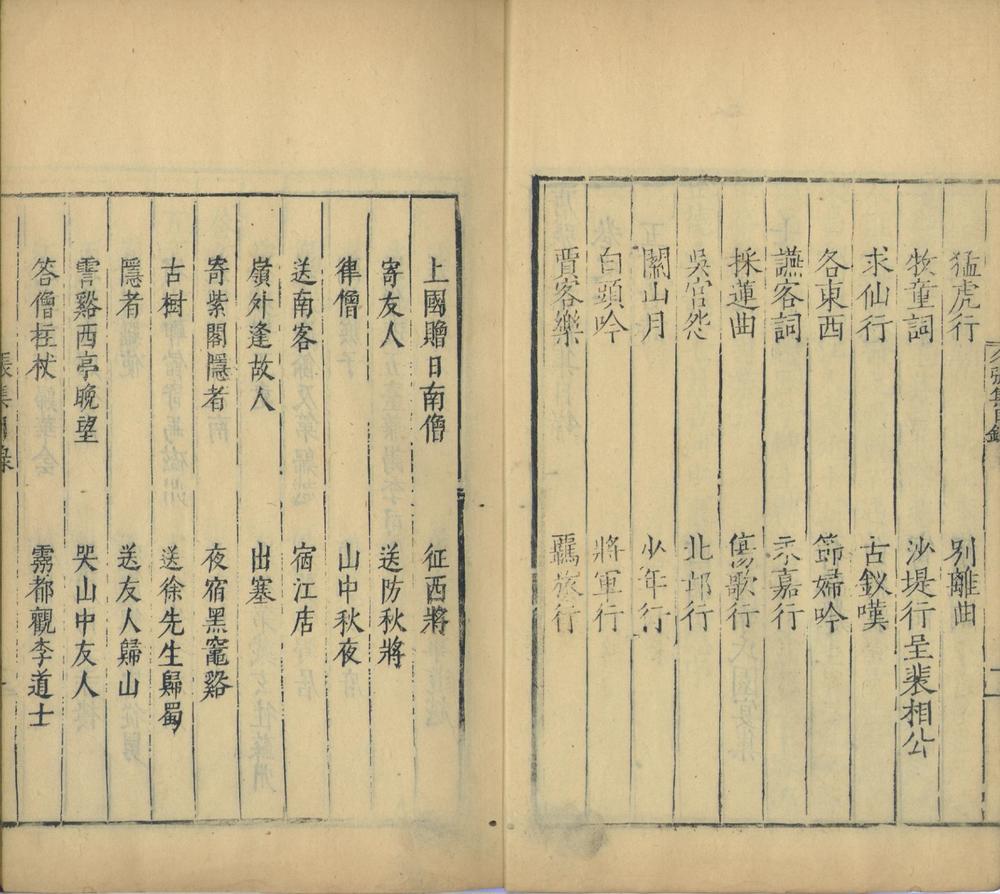 猛虎行　別離曲
牧童詞　沙堤行呈裴相公
求仙行　古釵嘆
各東西　節婦吟
讌客詞　永嘉行
採蓮曲　傷歌行
吳宫怨　北邙行
關山月　少年行
白頭吟　將軍行
賈客樂　羈旅行
上國贈日南僧　征西將
寄友人　送防秋將
律僧　山中秋夜
送南客　宿江店
嶺外逢故人　出塞
寄紫閣隱者　夜宿黑竈谿
古樹　送徐先生歸蜀
隱者　送友人歸山
霅谿西亭晚望　哭山中友人
答僧拄杖　霧都觀李道士
張集目錄